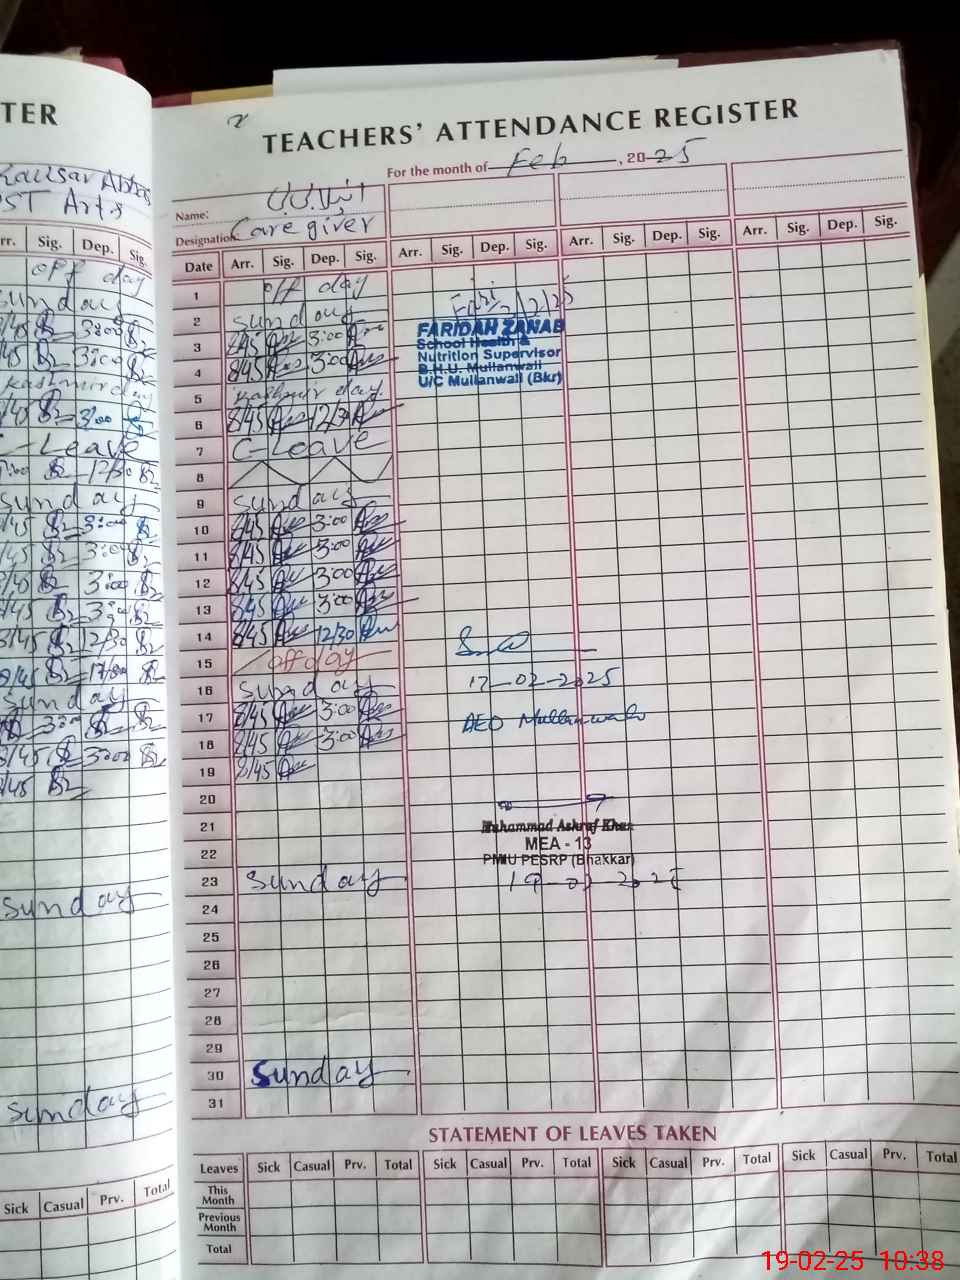 TER
Kausar Abbas
PST Arts
Arr. Sig. Dep. Sig.
off day
sunday
8/45 3:00
8/45 3:00
Kashmir day
8/45 3:00
C-Leave
12/30
sunday
8/45 3:00
8/45 3:00
8/45 3:00
8/45 3:00
8/45 12/30
8/45
sunday
3:00
8/45 3:00
8/45
sunday
sunday
Sick Casual Prv. Total
TEACHERS' ATTENDANCE REGISTER
For the month of Feb, 2025
Name:
Designation: Care giver
Date Arr. Sig. Dep. Sig. Arr. Sig. Dep. Sig. Arr. Sig. Dep. Sig. Arr. Sig. Dep. Sig.
1 off day
2 sunday
3 8/45 3:00
4 8/45 3:00
5 Kashmir day
6 8/45 12/30
7 C-Leave
8
9 sunday
10 8/45 3:00
11 8/45 3:00
12 8/45 3:00
13 8/45 3:00
14 8/45 12/30
15 off day
16 sunday
17 8/45 3:00
18 8/45 3:00
19 8/45
20
21
22
23 sunday
24
25
26
27
28
29
30 sunday
31
FARIDAH ZANAB
School Health &
Nutrition Supervisor
B.H.U. Mullanwali
U/C Mullanwali (Bkr)
17-02-2025
AEO Mullanwali
Muhammad Ashraf Khan
MEA - 13
PMIU PESRP (Bhakkar)
19-02-2025
STATEMENT OF LEAVES TAKEN
Leaves Sick Casual Prv. Total Sick Casual Prv. Total Sick Casual Prv. Total Sick Casual Prv. Total
This Month
Previous Month
Total
19-02-25 10:38